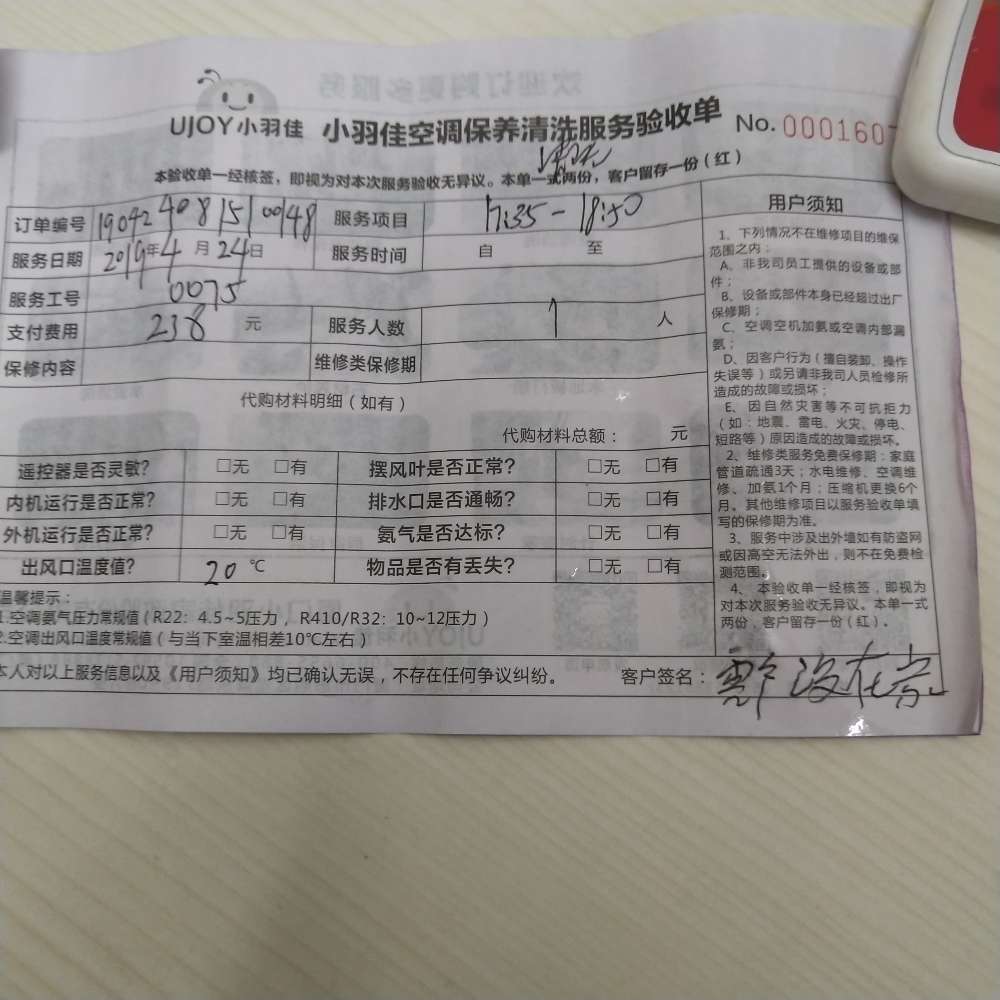 UJOY小羽佳 小羽佳空调保养清洗服务验收单 No. 000160
本验收单一经核签，即视为对本次服务验收无异议。本单一式两份，客户留存一份（红）
订单编号 190424081510048 服务项目 17:35-18:50
服务日期 2019年4月24日 服务时间 自 至
服务工号 0075
支付费用 238 元 服务人数 1 人
保修内容 维修类保修期
代购材料明细（如有）
代购材料总额： 元
遥控器是否灵敏? □无 □有 摆风叶是否正常? □无 □有
内机运行是否正常? □无 □有 排水口是否通畅? □无 □有
外机运行是否正常? □无 □有 氨气是否达标? □无 □有
出风口温度值? 20 ℃ 物品是否有丢失? □无 □有
温馨提示：
1.空调氨气压力常规值（R22：4.5~5压力，R410/R32：10~12压力）
2.空调出风口温度常规值（与当下室温相差10℃左右）
本人对以上服务信息以及《用户须知》均已确认无误，不存在任何争议纠纷。 客户签名： 客户没在家
用户须知
1、下列情况不在维修项目的维保
范围之内：
A、非我司员工提供的设备或部
件；
B、设备或部件本身已经超过出厂
保修期；
C、空调空机加氨或空调内部漏
氨；
D、因客户行为（擅自装卸、操作
失误等）或另请非我司人员检修所
造成的故障或损坏；
E、因自然灾害等不可抗拒力
（如：地震、雷电、火灾、停电、
短路等）原因造成的故障或损坏。
2、维修类服务免费保修期：家庭
管道疏通3天；水电维修、空调维
修、加氨1个月；压缩机更换6个
月。其他维修项目以服务验收单填
写的保修期为准。
3、服务中涉及出外墙如有防盗网
或因高空无法外出，则不在免费检
测范围。
4、本验收单一经核签，即视为
对本次服务验收无异议。本单一式
两份，客户留存一份（红）。